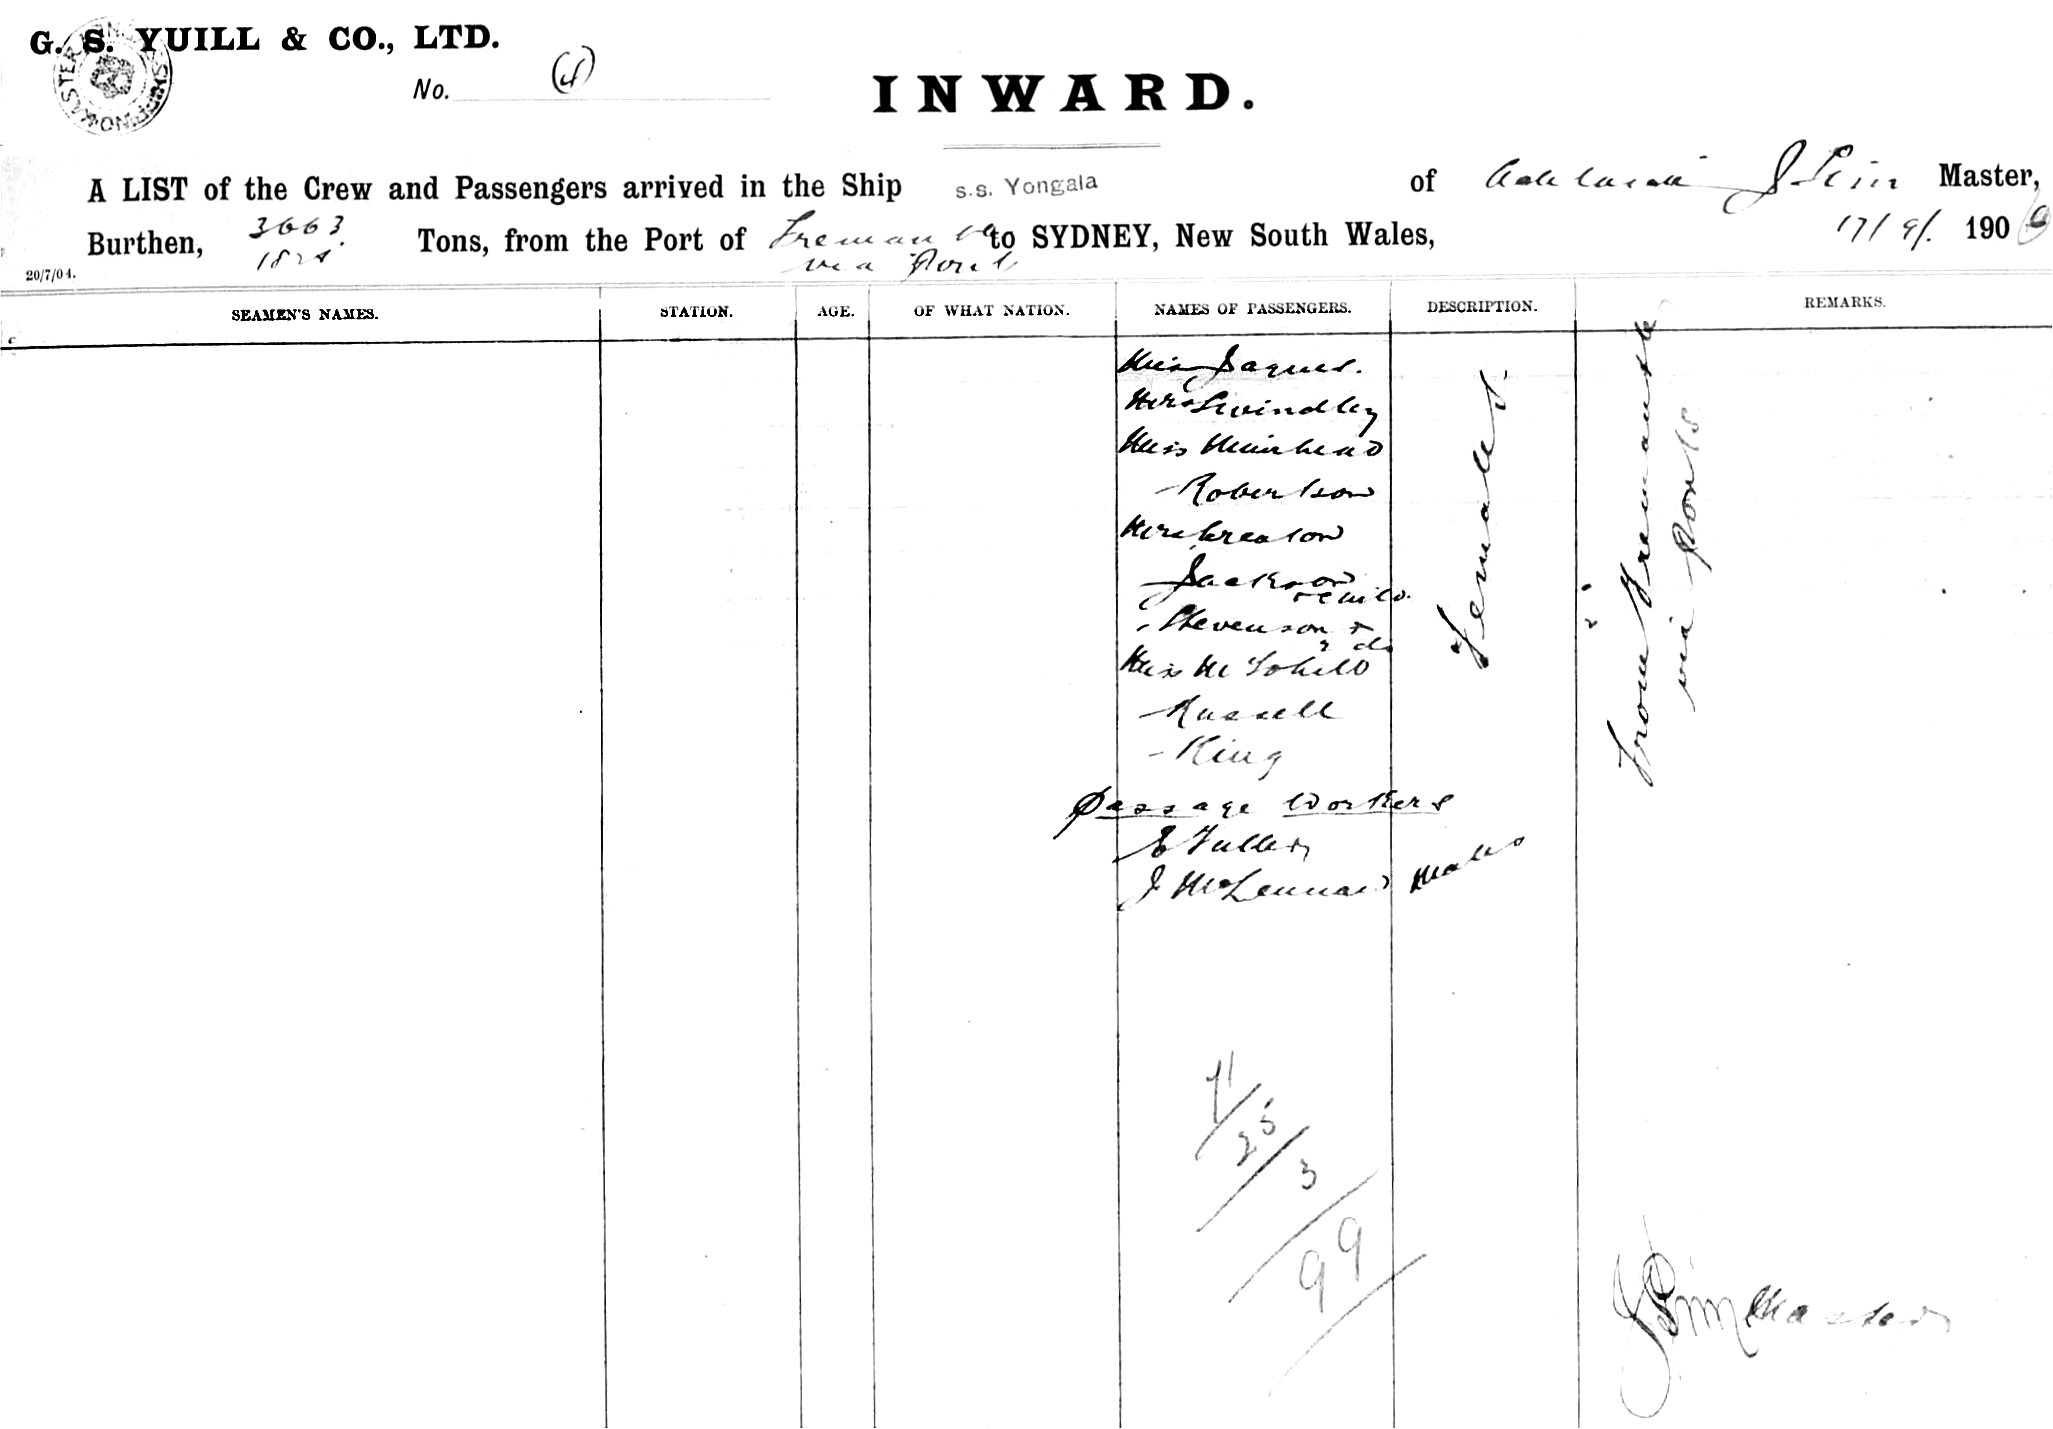 G. S. YUILL & CO., LTD.
No. (4)
INWARD.
A LIST of the Crew and Passengers arrived in the Ship s.s. Yongala of Adelaide J Sim Master,
Burthen, 3663 Tons, from the Port of Fremantle to SYDNEY, New South Wales, 17/9/. 190
via Ports
20/7/04.
SEAMEN'S NAMES. STATION. AGE. OF WHAT NATION. NAMES OF PASSENGERS. DESCRIPTION. REMARKS.
Miss Jaques.
Mrs Swindley
Miss Muirhead
- Robertson
Mrs Creaton
Jackson
+ Child.
" Stevenson +
2 do
Miss
- Russell
- King
Females.
From Fremantle
via Ports
Passage Workers
E Fuller
J McLennan Males
71
25
3
99
J Sim Master